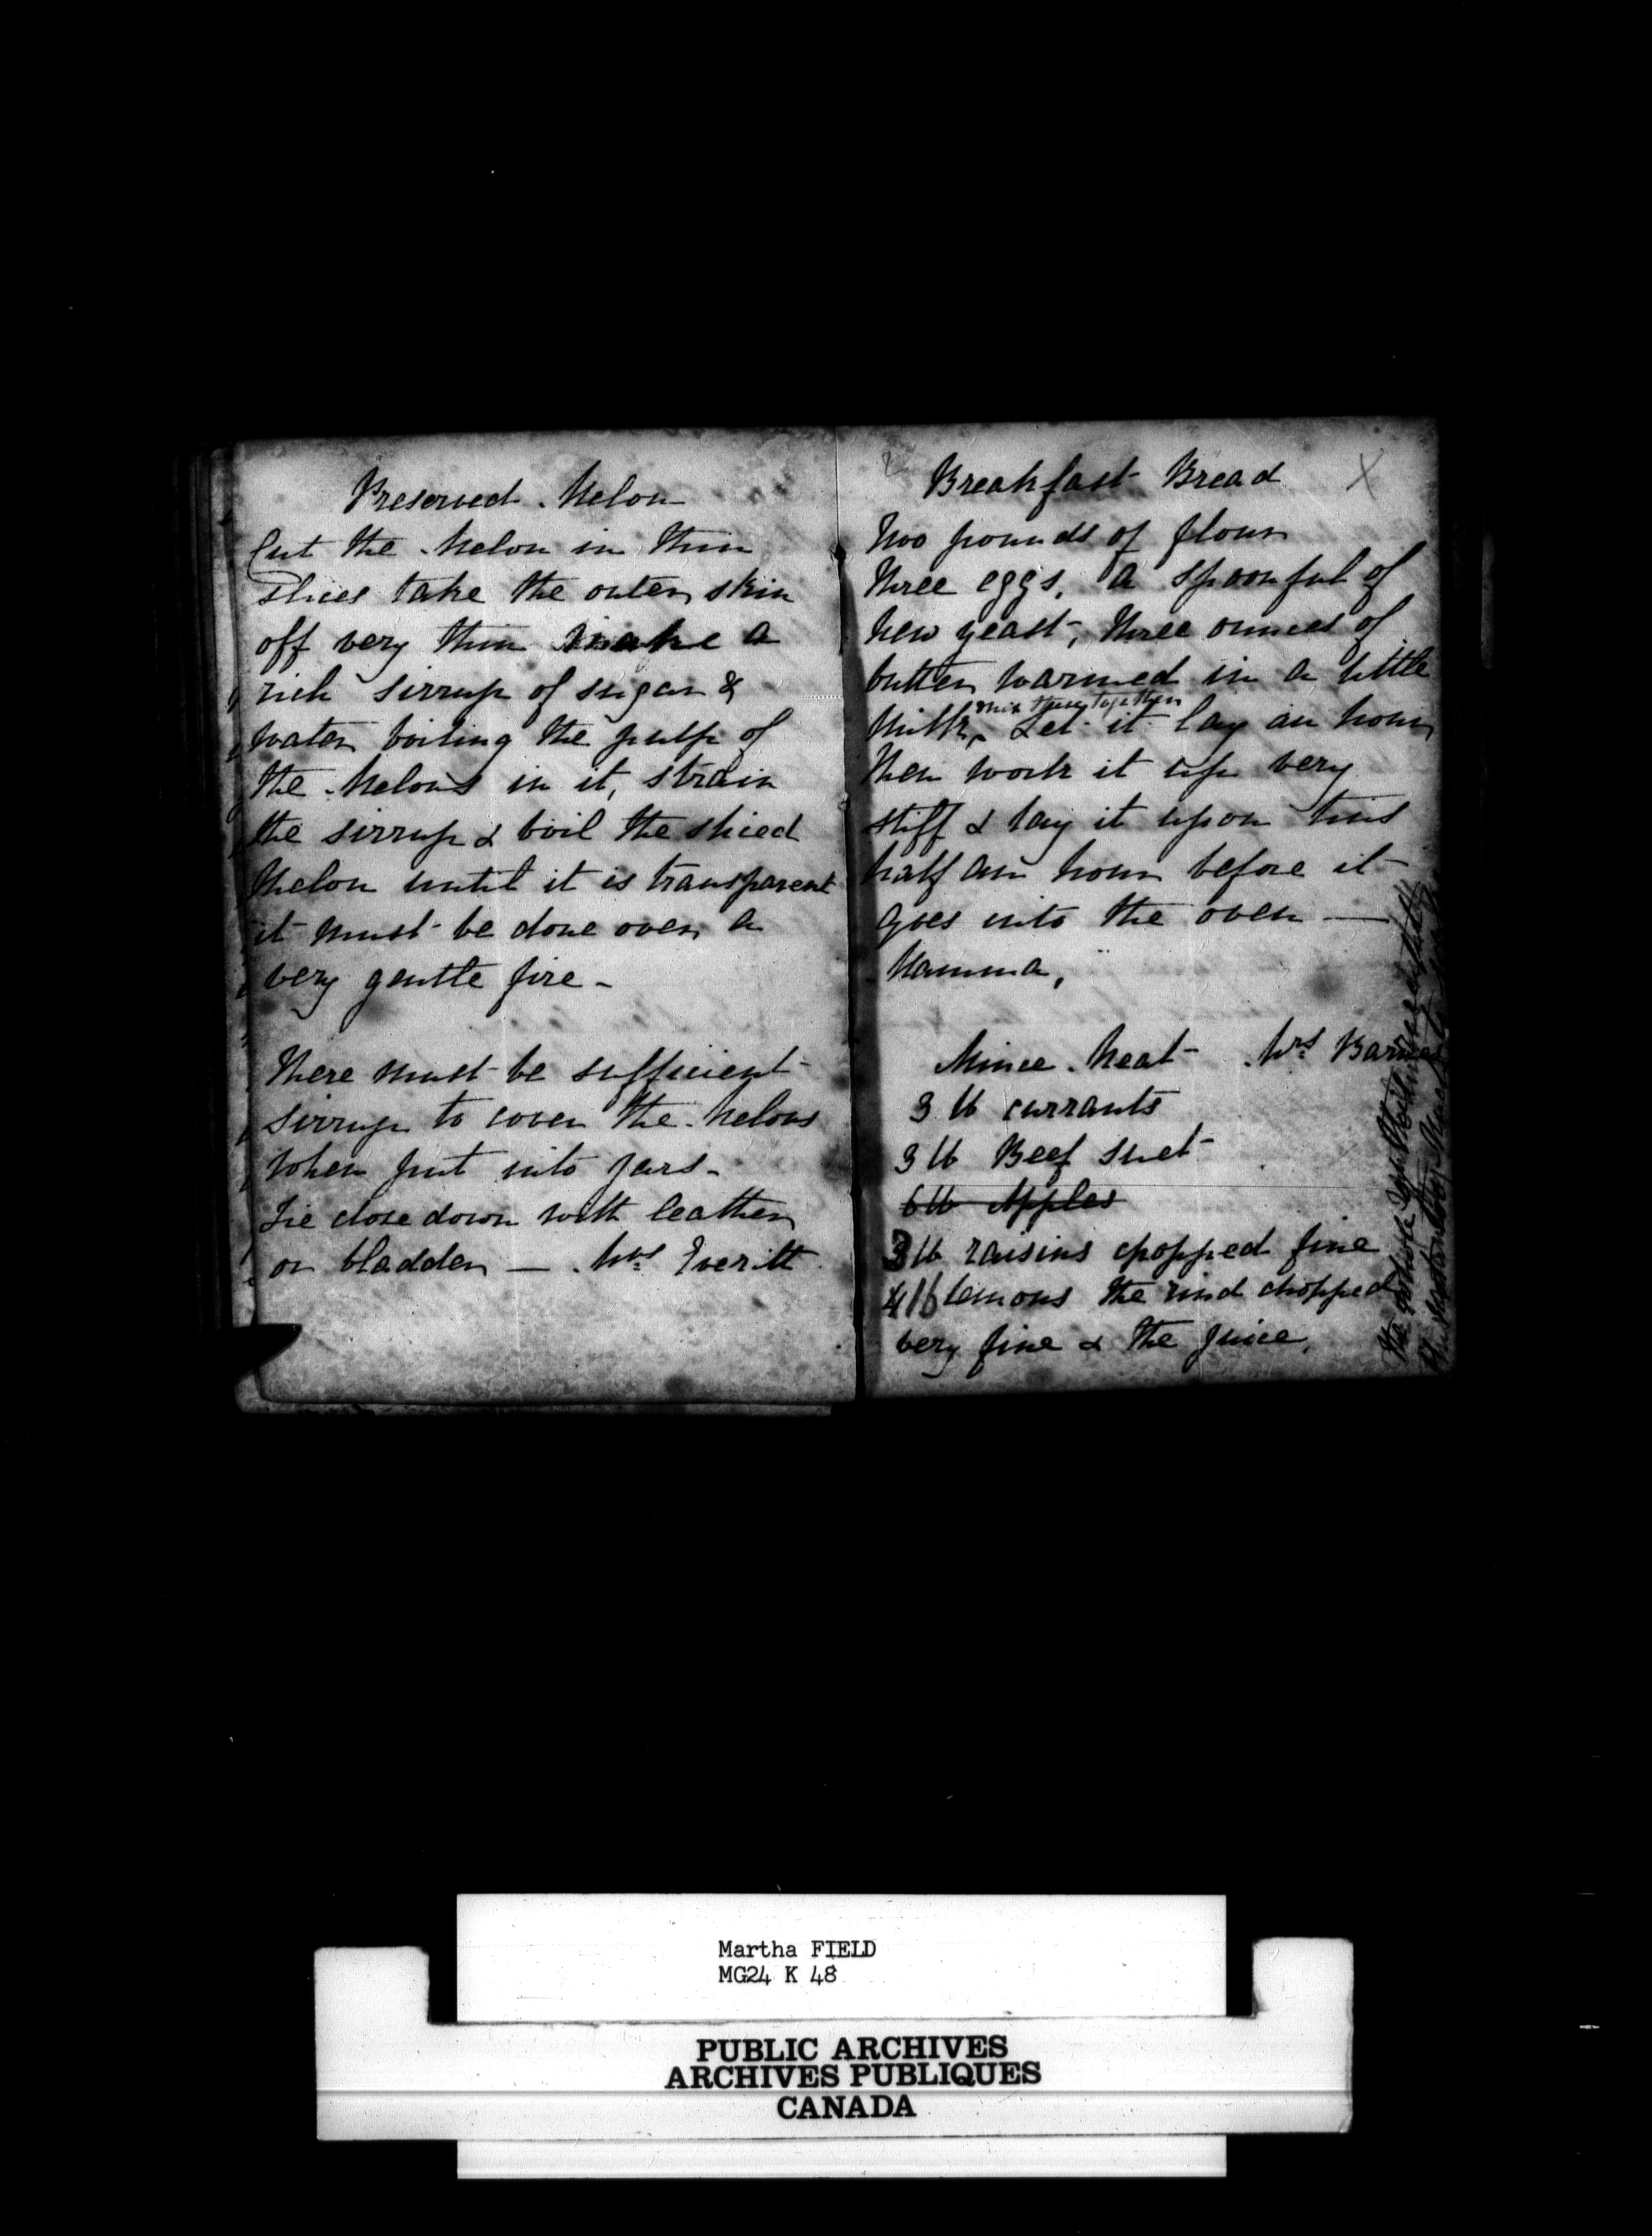 Preserved Melon
Cut the Melon in thin
slices take the outer skin
off very thin make a
rich sirrup of sugar &
water boiling the pulp of
the Melons in it, strain
the sirrup & boil the sliced
Melon until it is transparent
it must be done over a
very gentle fire -
There must be sufficient
sirrup to cover the Melons
when put into jars -
Tie close down with leather
or bladder — Mrs Everitt
Breakfast Bread X
Two pounds of flour
three eggs, a spoonful of
new yeast, three ounces of
butter warmed in a little
mix them together
Milk, Let it lay an hour
then work it up very
stiff & lay it upon tins
half an hour before it
goes into the oven —
Mamma,
Mince Meat - Mrs Barnes
3 lb currants
3 lb Beef Suet
6 lb Apples
3 lb raisins chopped fine
4 lb Lemons the rind chopped
very fine & the juice,
the whole
Martha FIELD
MG24 K 48
PUBLIC ARCHIVES
ARCHIVES PUBLIQUES
CANADA